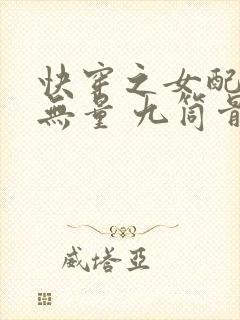 快穿之女配
無量 九筒
威塔亞